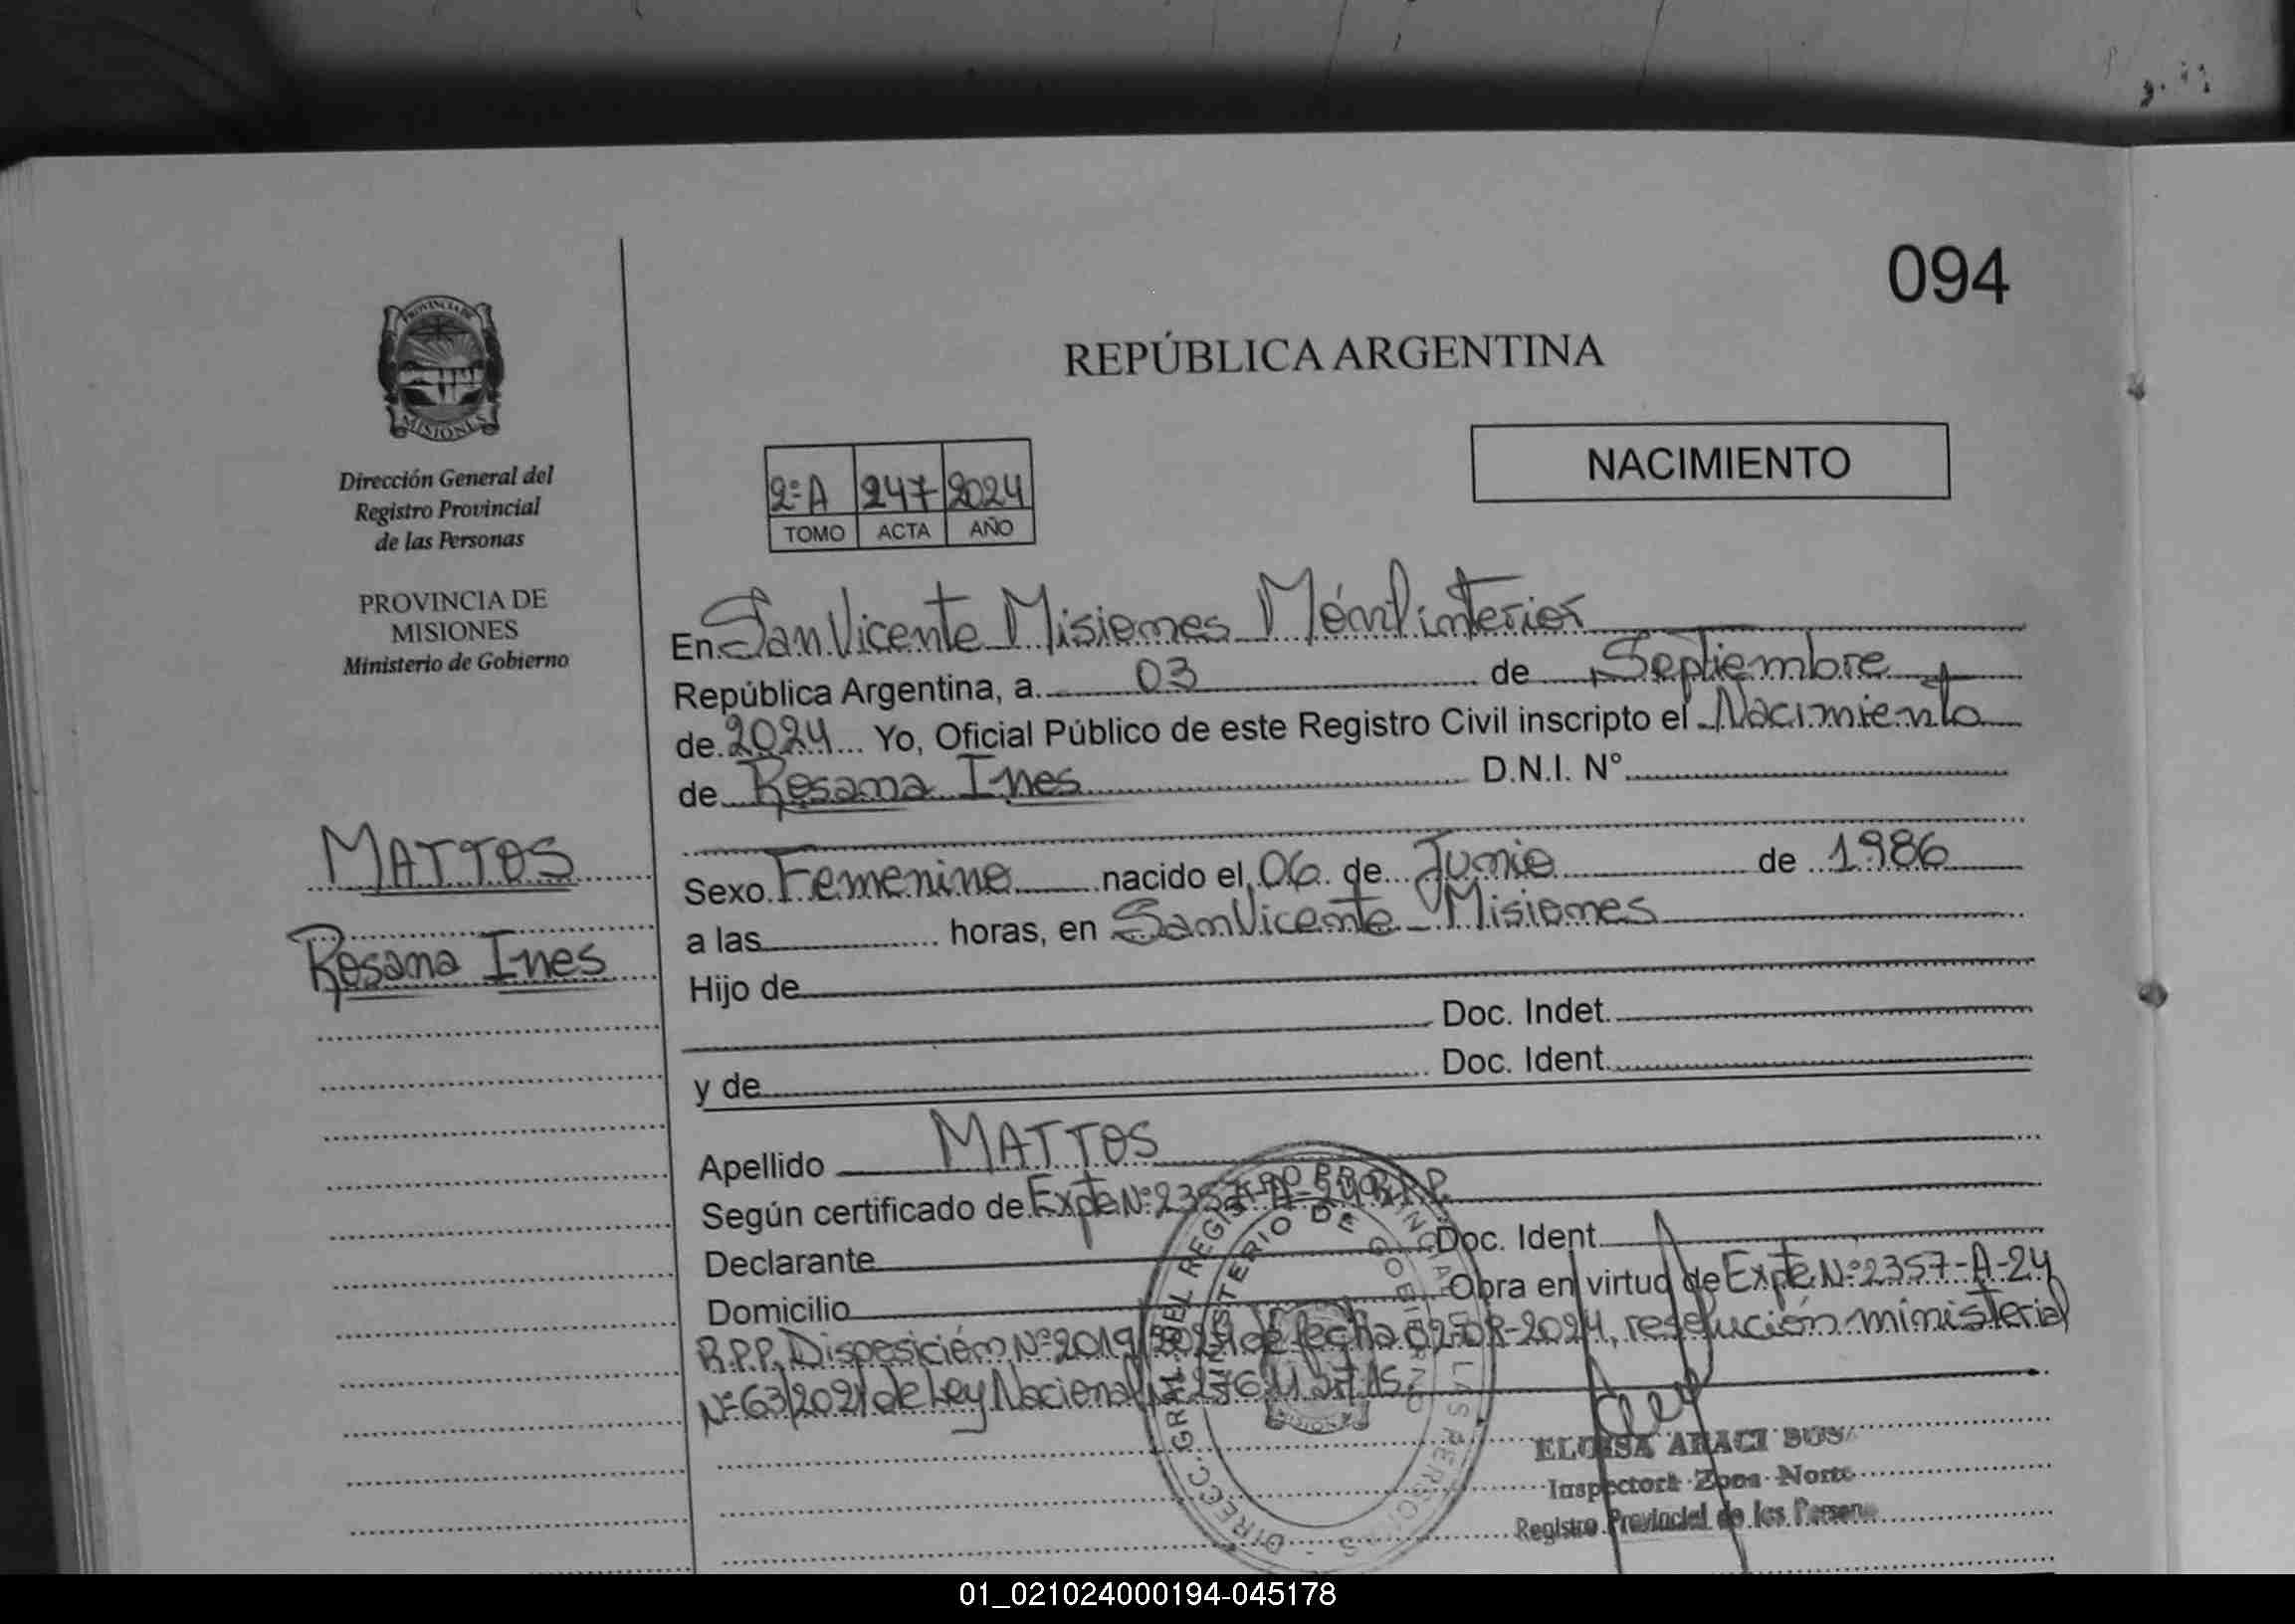 094
PROVINCIA DE
MISIONES
REPÚBLICA ARGENTINA
NACIMIENTO
Dirección General del
Registro Provincial
de las Personas
PROVINCIA DE
MISIONES
Ministerio de Gobierno
2ºA 247 2024
TOMO ACTA AÑO
MATTOS
Rosana Ines
En San Vicente Misiones Móvil interior
República Argentina, a 03 de Septiembre
de 2024 Yo, Oficial Público de este Registro Civil inscripto el Nacimiento
de Rosana Ines D.N.I. N°
Sexo Femenino nacido el 06 de Junio de 1986
a las horas, en San Vicente - Misiones
Hijo de
Doc. Indet.
y de Doc. Ident.
Apellido MATTOS
Según certificado de Expte Nº 2357-A-24 R.P.P.
Declarante Doc. Ident.
Domicilio Obra en virtud de Expte Nº 2357-A-24
R.P.P. Disposición Nº 2019/2024 de fecha 02-08-2024, resolución ministerial
Nº 63/2021 de Ley Nacional
DIRECC. GRAL. DEL REGISTRO PROVINCIAL DE LAS PERSONAS
MINISTERIO DE GOBIERNO
ELOISA ARACI
Inspectora Zona Norte
Registro Provincial de las
01_021024000194-045178